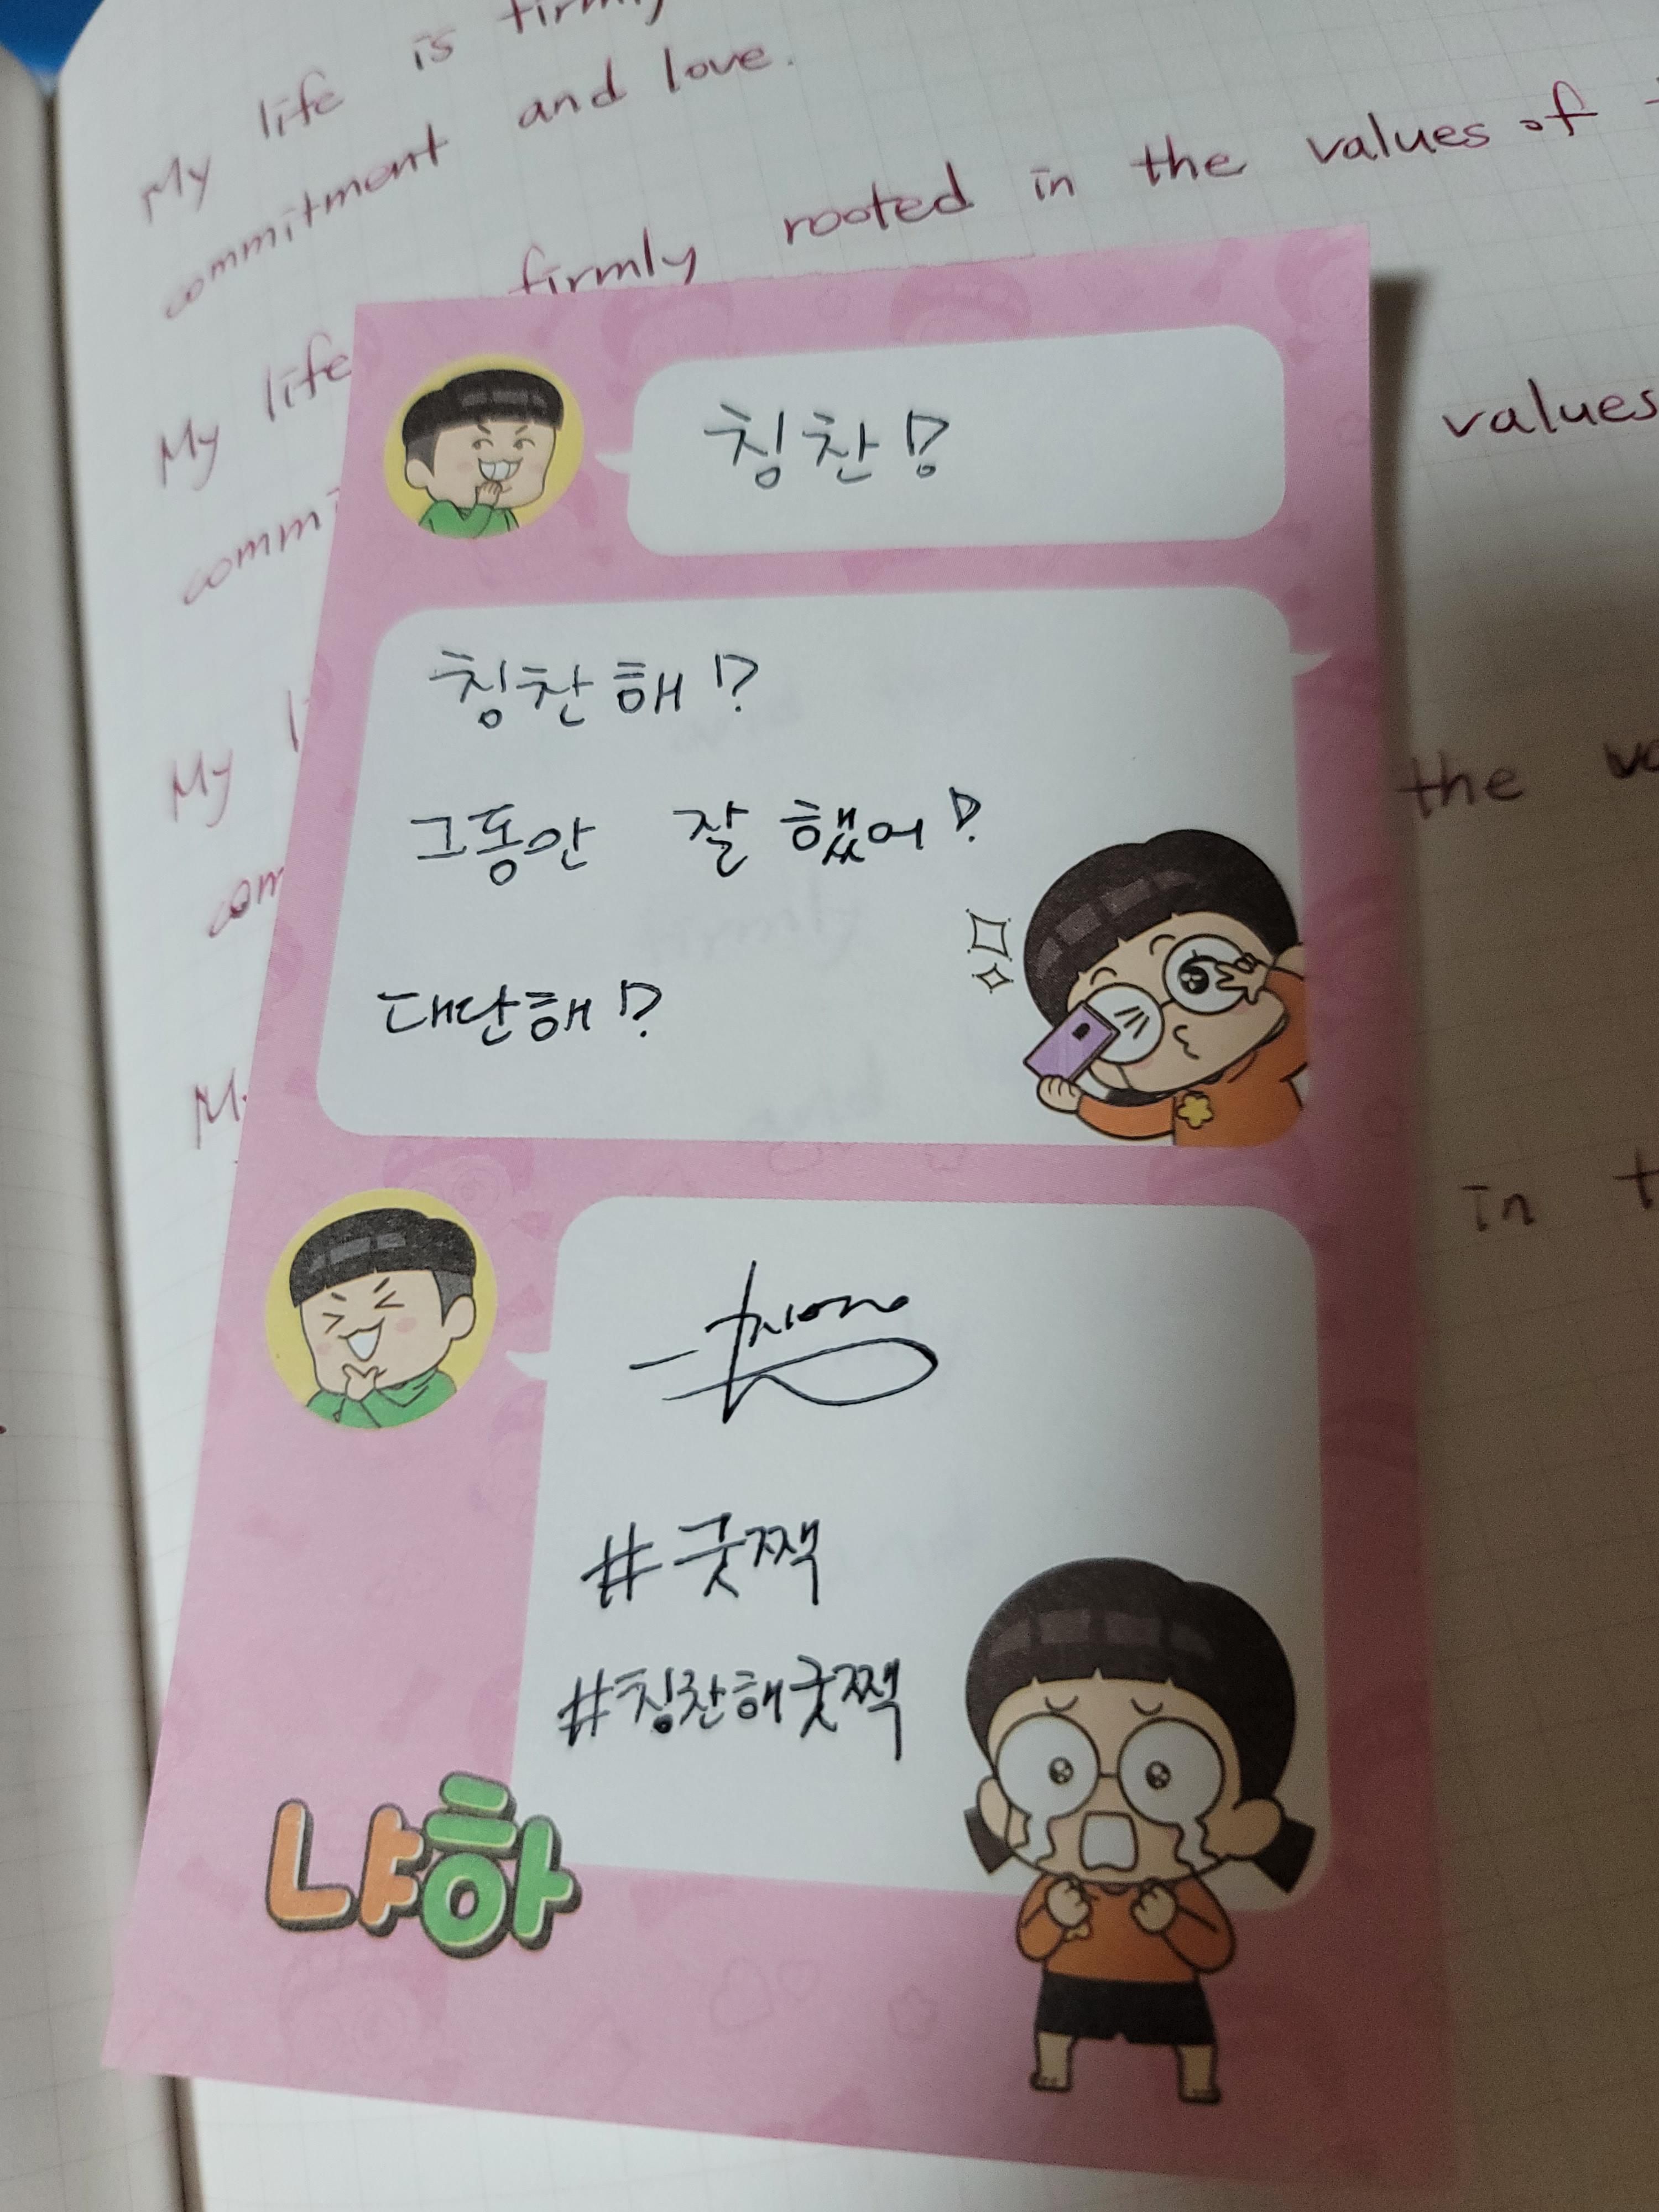 My life is firmly
commitment and love.
My life firmly rooted in the values of
comm values
My the
com
My in
칭찬!
칭찬해!
그동안 잘 했어!
대단해!
#굿짹
#칭찬해굿짹
냐하